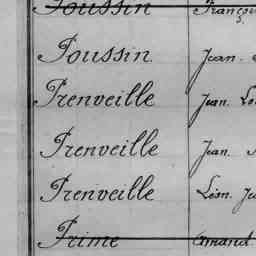 Poussin
Poussin Jean
Prenveille Jean Lo
Prenveille Jean
Prenveille Léon Ju
Prime Amand